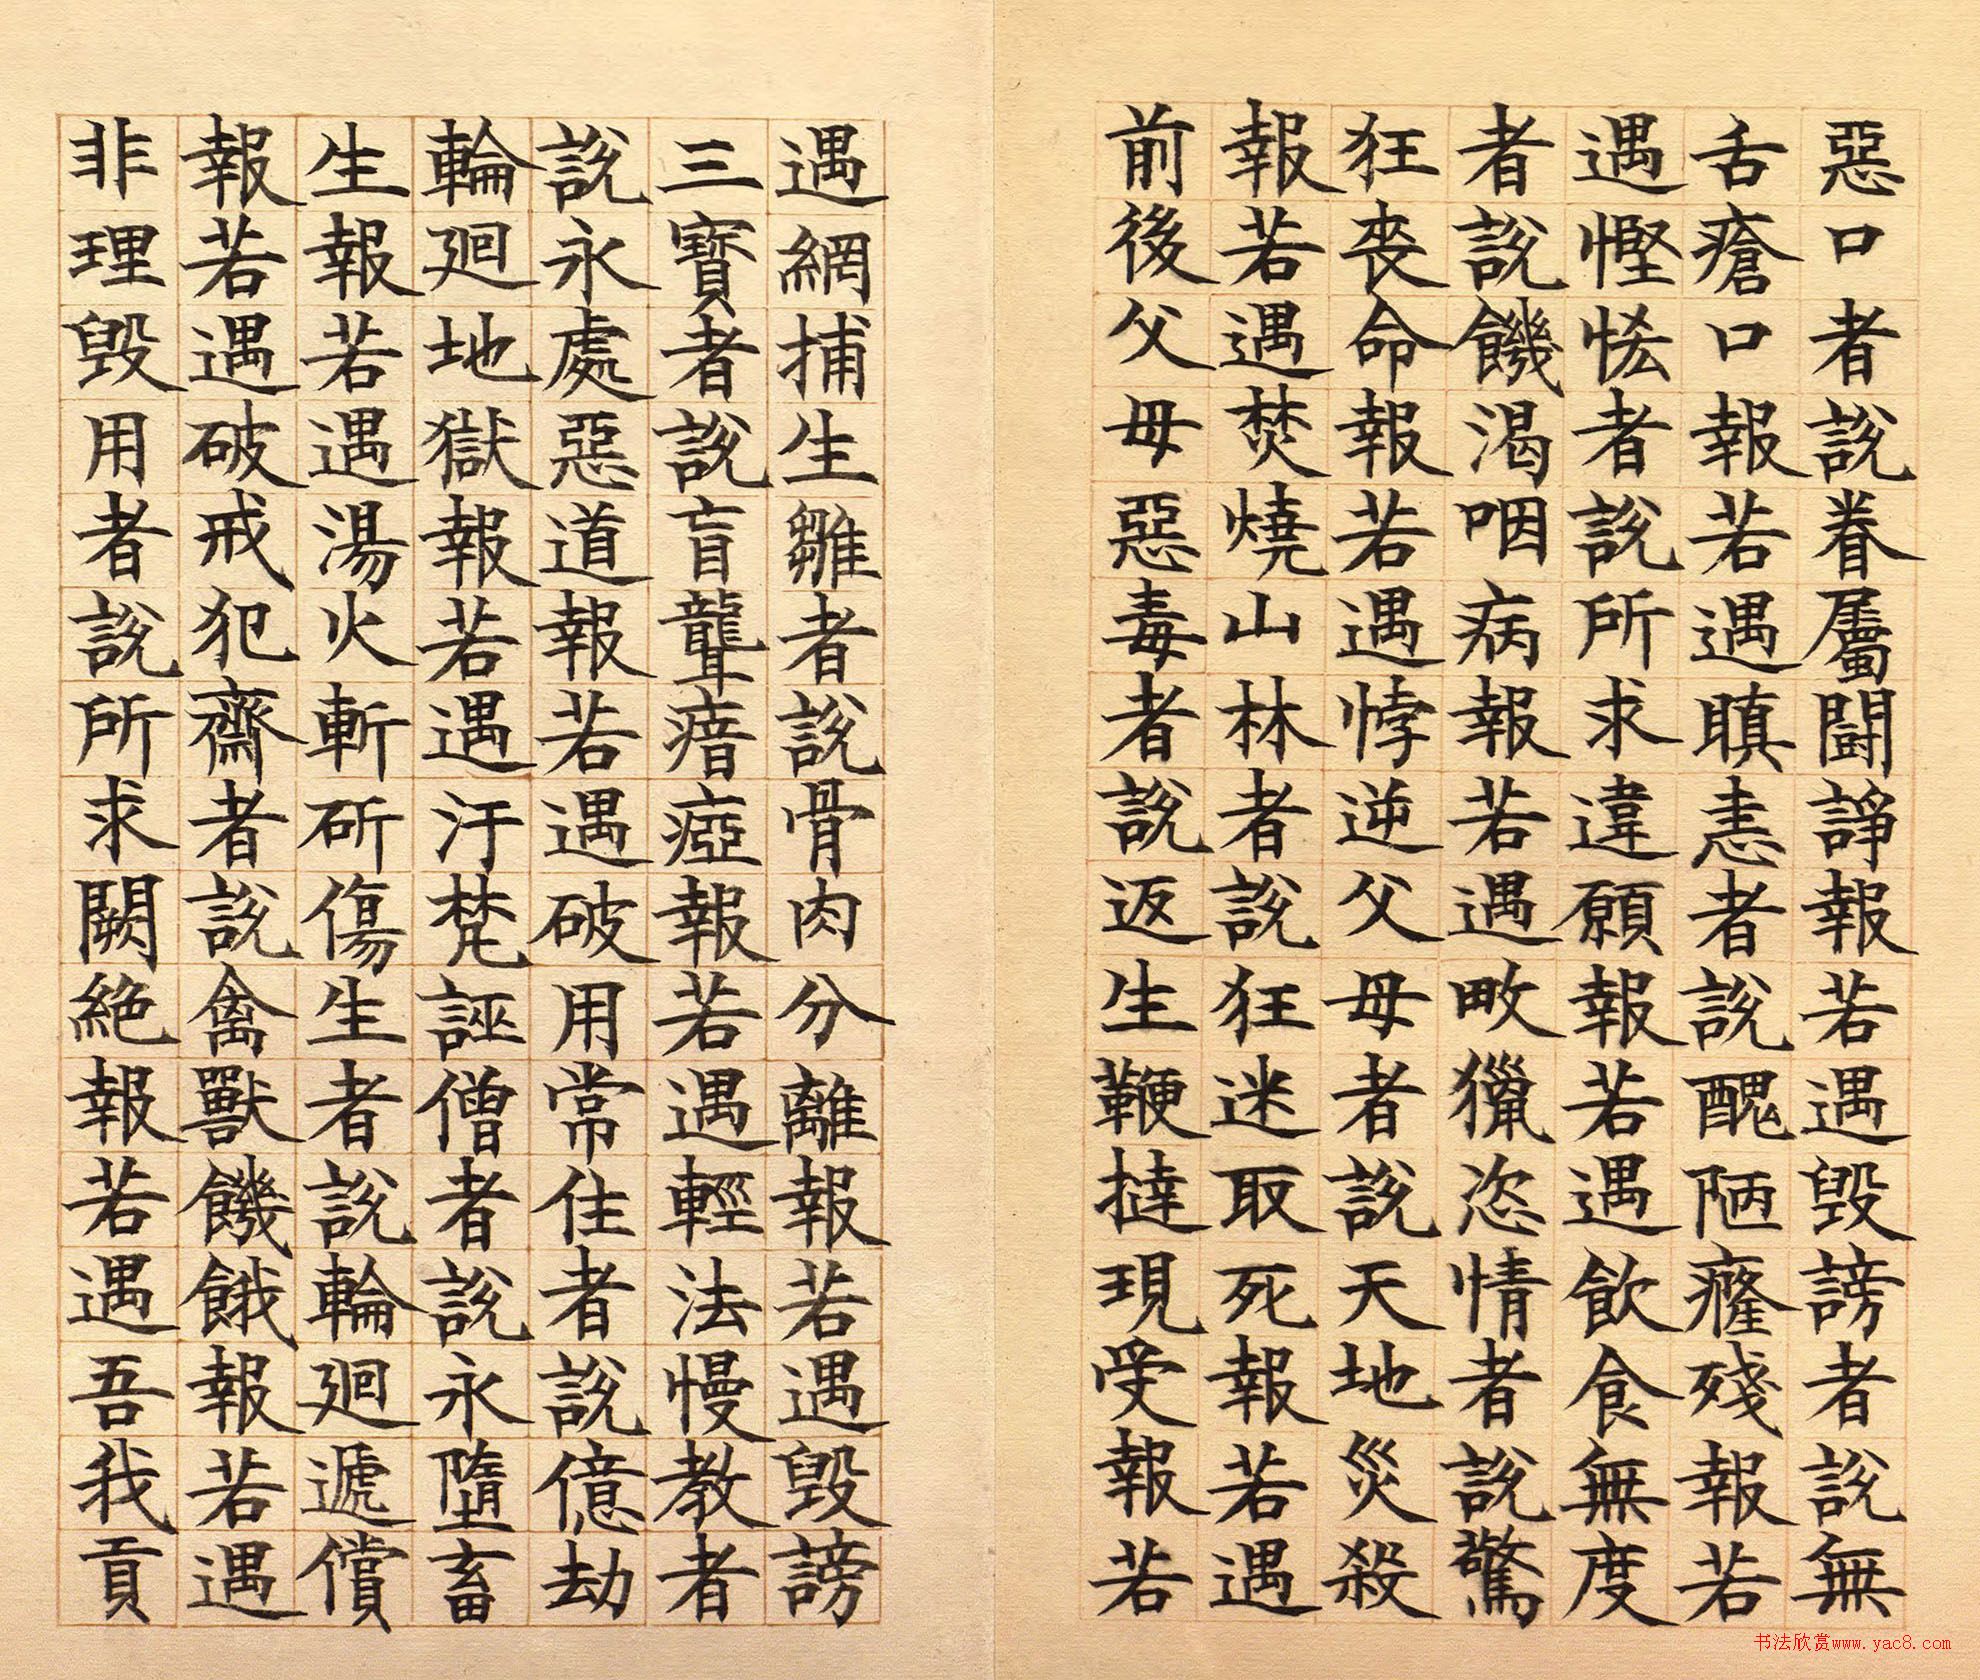 惡口者說眷屬鬪諍報若遇毀謗者說無
舌瘡口報若遇瞋恚者說醜陋癃殘報若
遇慳悋者說所求違願報若遇飲食無度
者說饑渴咽病報若遇畋獵恣情者說驚
狂喪命報若遇悖逆父母者說天地災殺
報若遇焚燒山林者說狂迷取死報若遇
前後父母惡毒者說返生鞭撻現受報若
遇網捕生雛者說骨肉分離報若遇毀謗
三寶者說盲聾瘖瘂報若遇輕法慢教者
說永處惡道報若遇破用常住者說億劫
輪廻地獄報若遇汙梵誣僧者說永墮畜
生報若遇湯火斬斫傷生者說輪廻遞償
報若遇破戒犯齋者說禽獸饑餓報若遇
非理毀用者說所求闕絕報若遇吾我貢
书法欣赏www.yac8.com